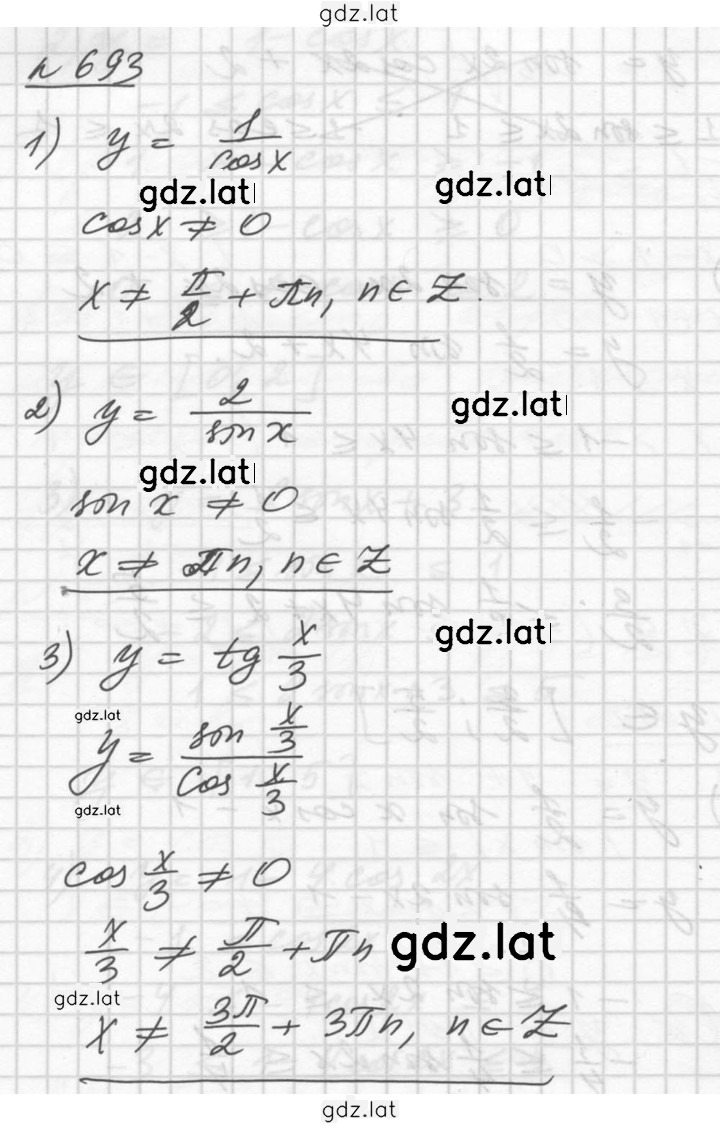 gdz.lat
n 693
1) y = 1/cosx
gdz.lat
gdz.lat
cosx ≠ 0
x ≠ π/2 + πn, n ∈ Z.
2) y = 2/sin x
gdz.lat
gdz.lat
sin x ≠ 0
x ≠ πn, n ∈ Z
gdz.lat
3) y = tg x/3
gdz.lat
y = sin x/3 / cos x/3
gdz.lat
cos x/3 ≠ 0
x/3 ≠ π/2 + πn
gdz.lat
gdz.lat
x ≠ 3π/2 + 3πn, n ∈ Z
gdz.lat